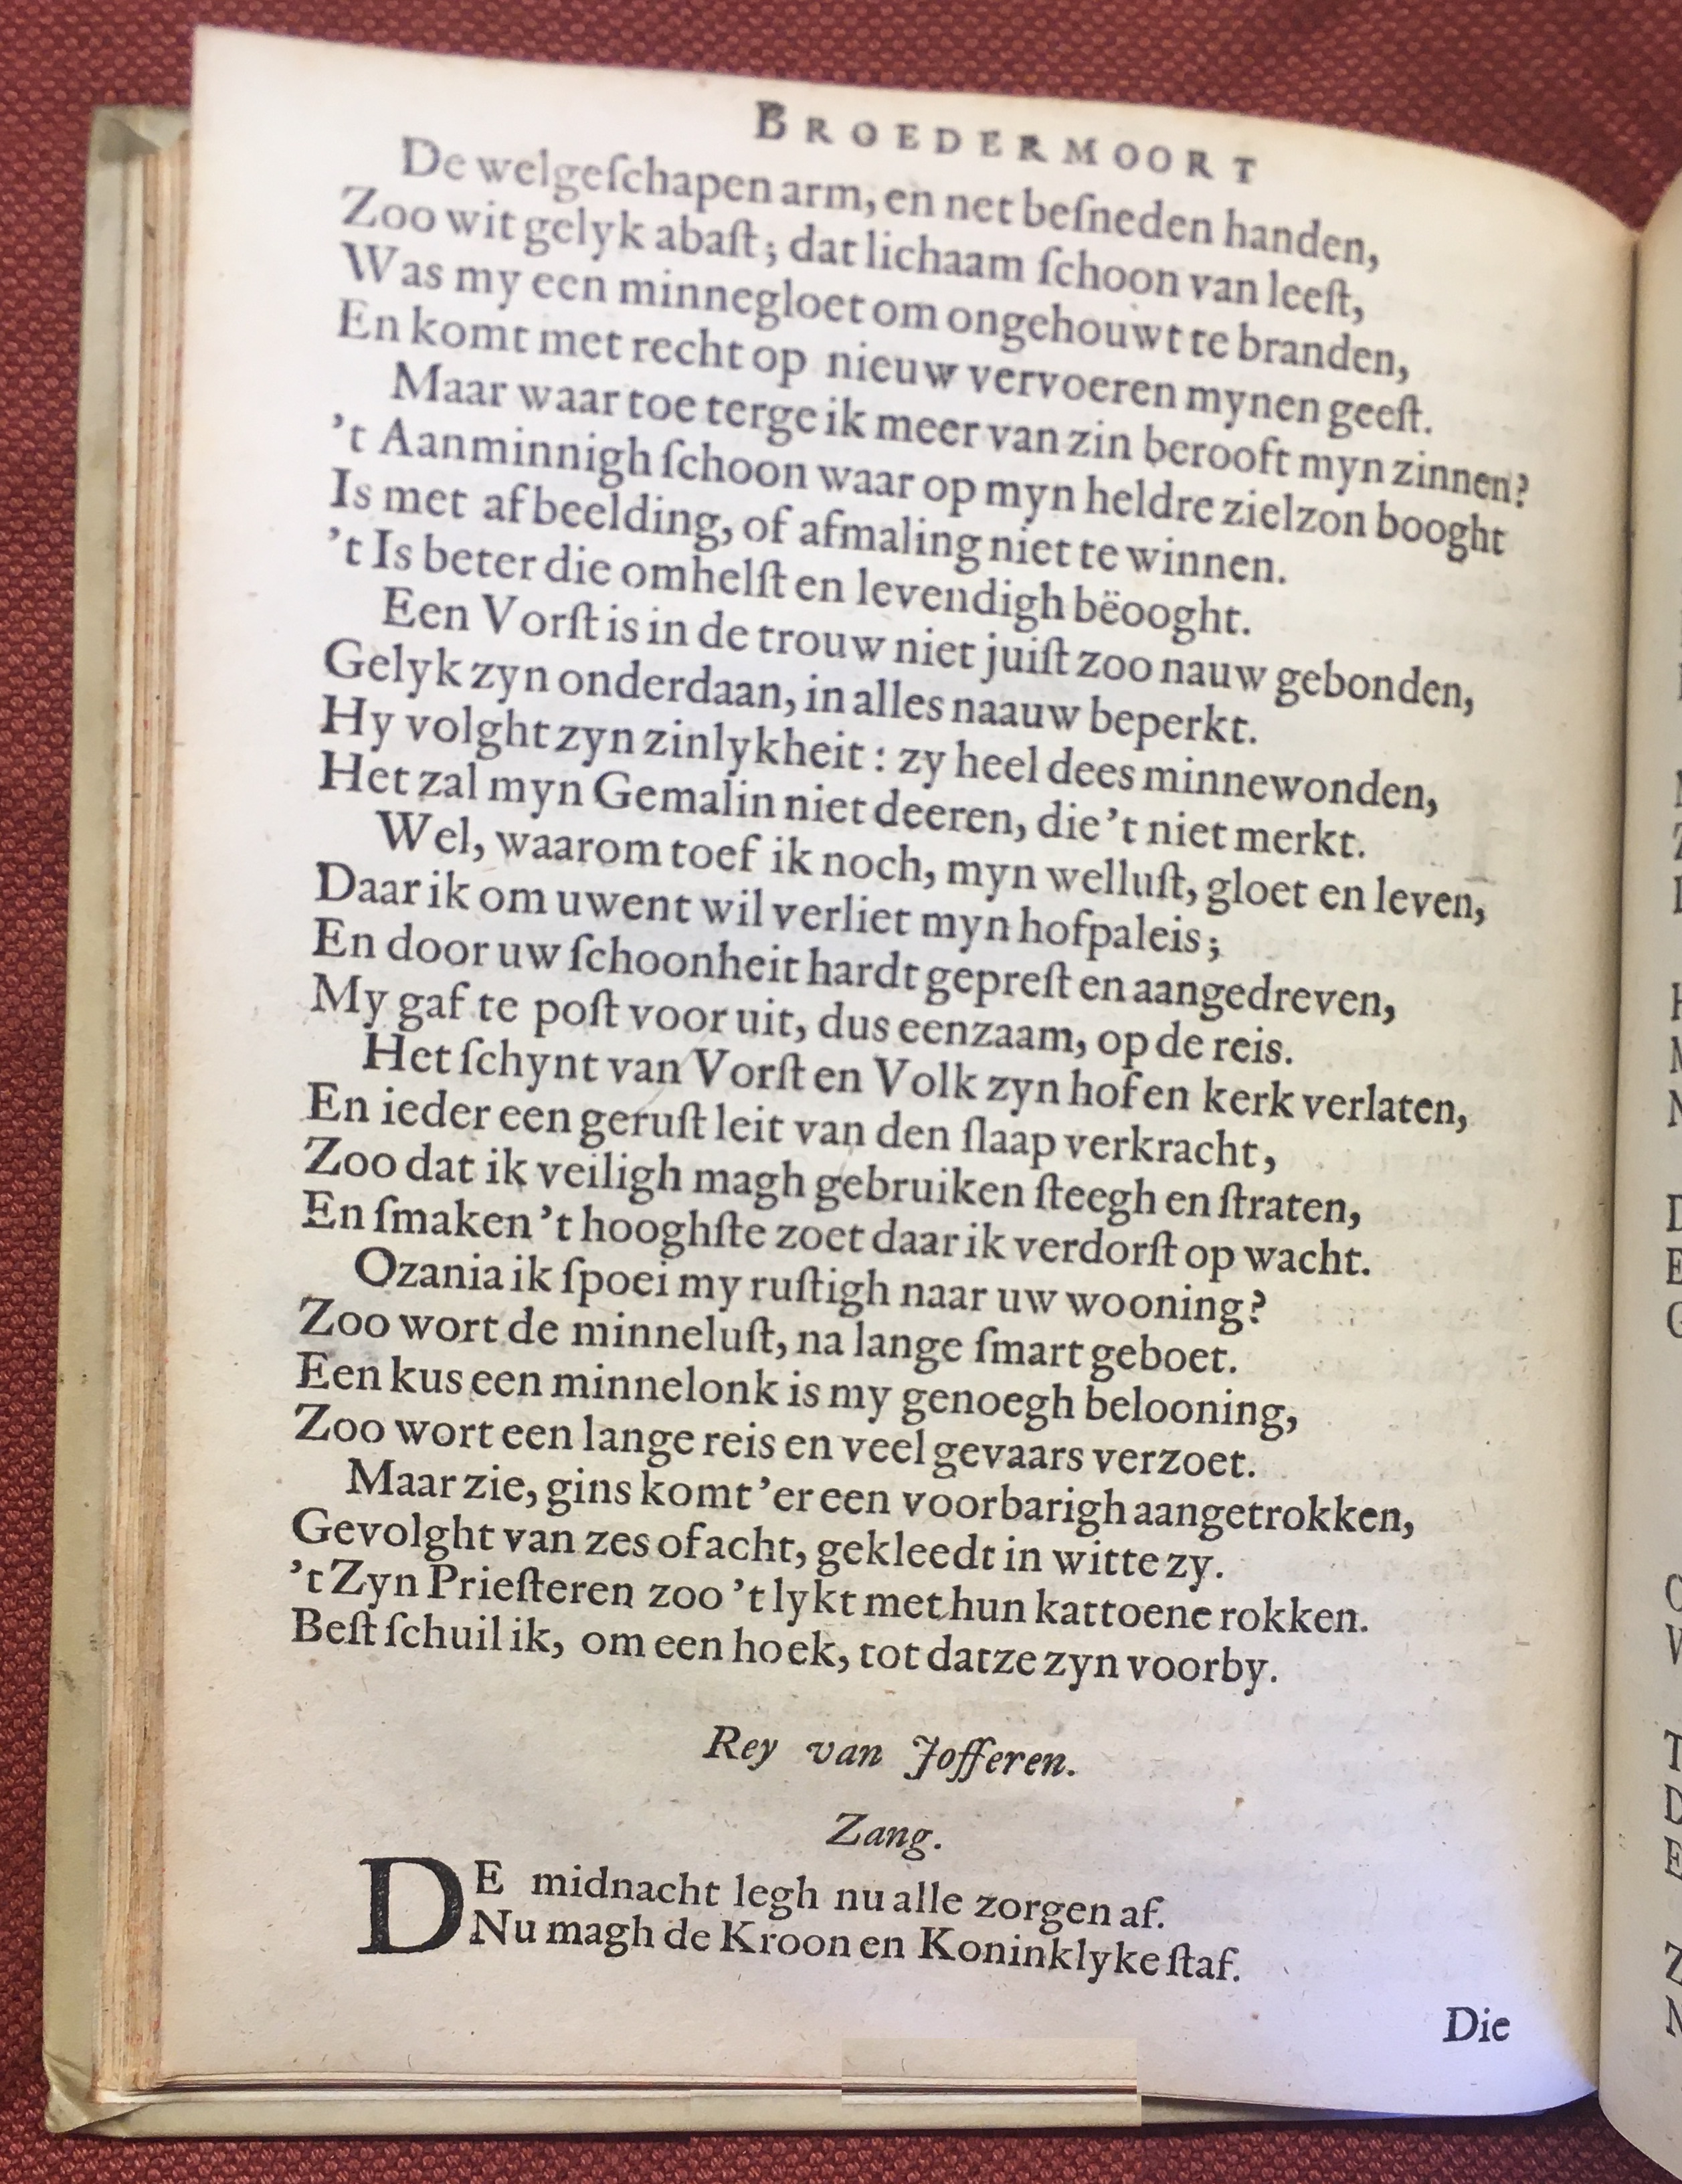 BROEDERMOORT
De welgeſchapen arm, en net beſneden handen,
Zoo wit gelyk abaſt; dat lichaam ſchoon van leeſt,
Was my een minnegloet om ongehouwt te branden,
En komt met recht op nieuw vervoeren mynen geeſt.
Maar waar toe terge ik meer van zin berooft myn zinnen?
't Aanminnigh ſchoon waar op myn heldre zielzon booght
Is met afbeelding, of afmaling niet te winnen.
't Is beter die omhelſt en levendigh bëooght.
Een Vorſt is in de trouw niet juiſt zoo nauw gebonden,
Gelyk zyn onderdaan, in alles naauw beperkt.
Hy volght zyn zinlykheit: zy heel dees minnewonden,
Het zal myn Gemalin niet deeren, die 't niet merkt.
Wel, waarom toef ik noch, myn welluſt, gloet en leven,
Daar ik om uwent wil verliet myn hofpaleis;
En door uw ſchoonheit hardt gepreſt en aangedreven,
My gaf te poſt voor uit, dus eenzaam, op de reis.
Het ſchynt van Vorſt en Volk zyn hof en kerk verlaten,
En ieder een geruſt leit van den ſlaap verkracht,
Zoo dat ik veiligh magh gebruiken ſteegh en ſtraten,
En ſmaken 't hooghſte zoet daar ik verdorſt op wacht.
Ozania ik ſpoei my ruſtigh naar uw wooning?
Zoo wort de minneluſt, na lange ſmart geboet.
Een kus een minnelonk is my genoegh belooning,
Zoo wort een lange reis en veel gevaars verzoet.
Maar zie, gins komt 'er een voorbarigh aangetrokken,
Gevolght van zes of acht, gekleedt in witte zy.
't Zyn Prieſteren zoo 't lykt met hun kattoene rokken.
Beſt ſchuil ik, om een hoek, tot datze zyn voorby.
Rey van Jofferen.
Zang.
DE midnacht legh nu alle zorgen af.
Nu magh de Kroon en Koninklyke ſtaf.
Die